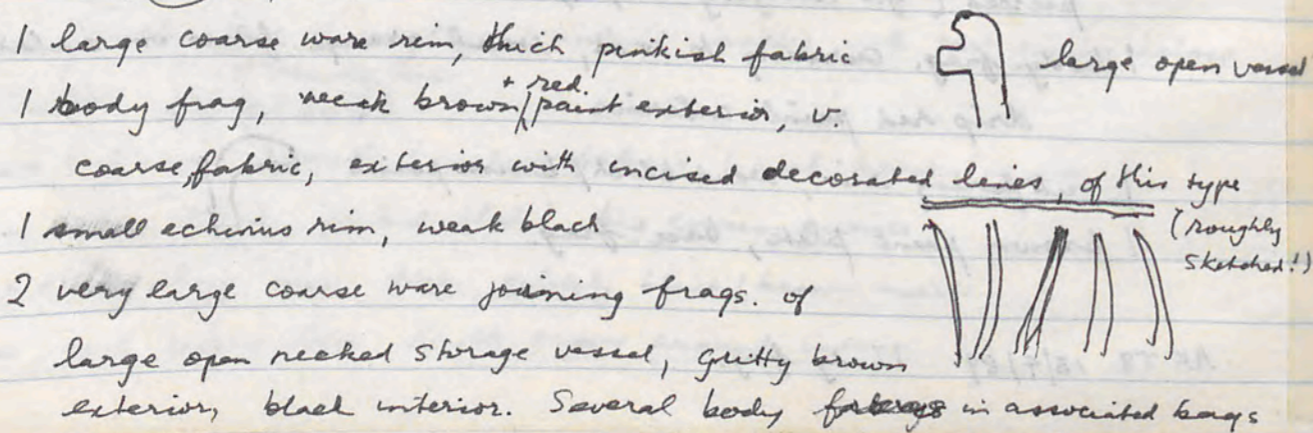 1 large coarse ware rim, thick pinkish fabric large open vessel
1 body frag, weak brown + red paint exterior, v.
coarse, fabric, exterior with incised decorated lines, of this type
(roughly
sketched!)
1 small echinus rim, weak black
2 very large coarse ware joining frags. of
large open necked storage vessel, gritty brown
exterior, black interior. Several body in associated bags